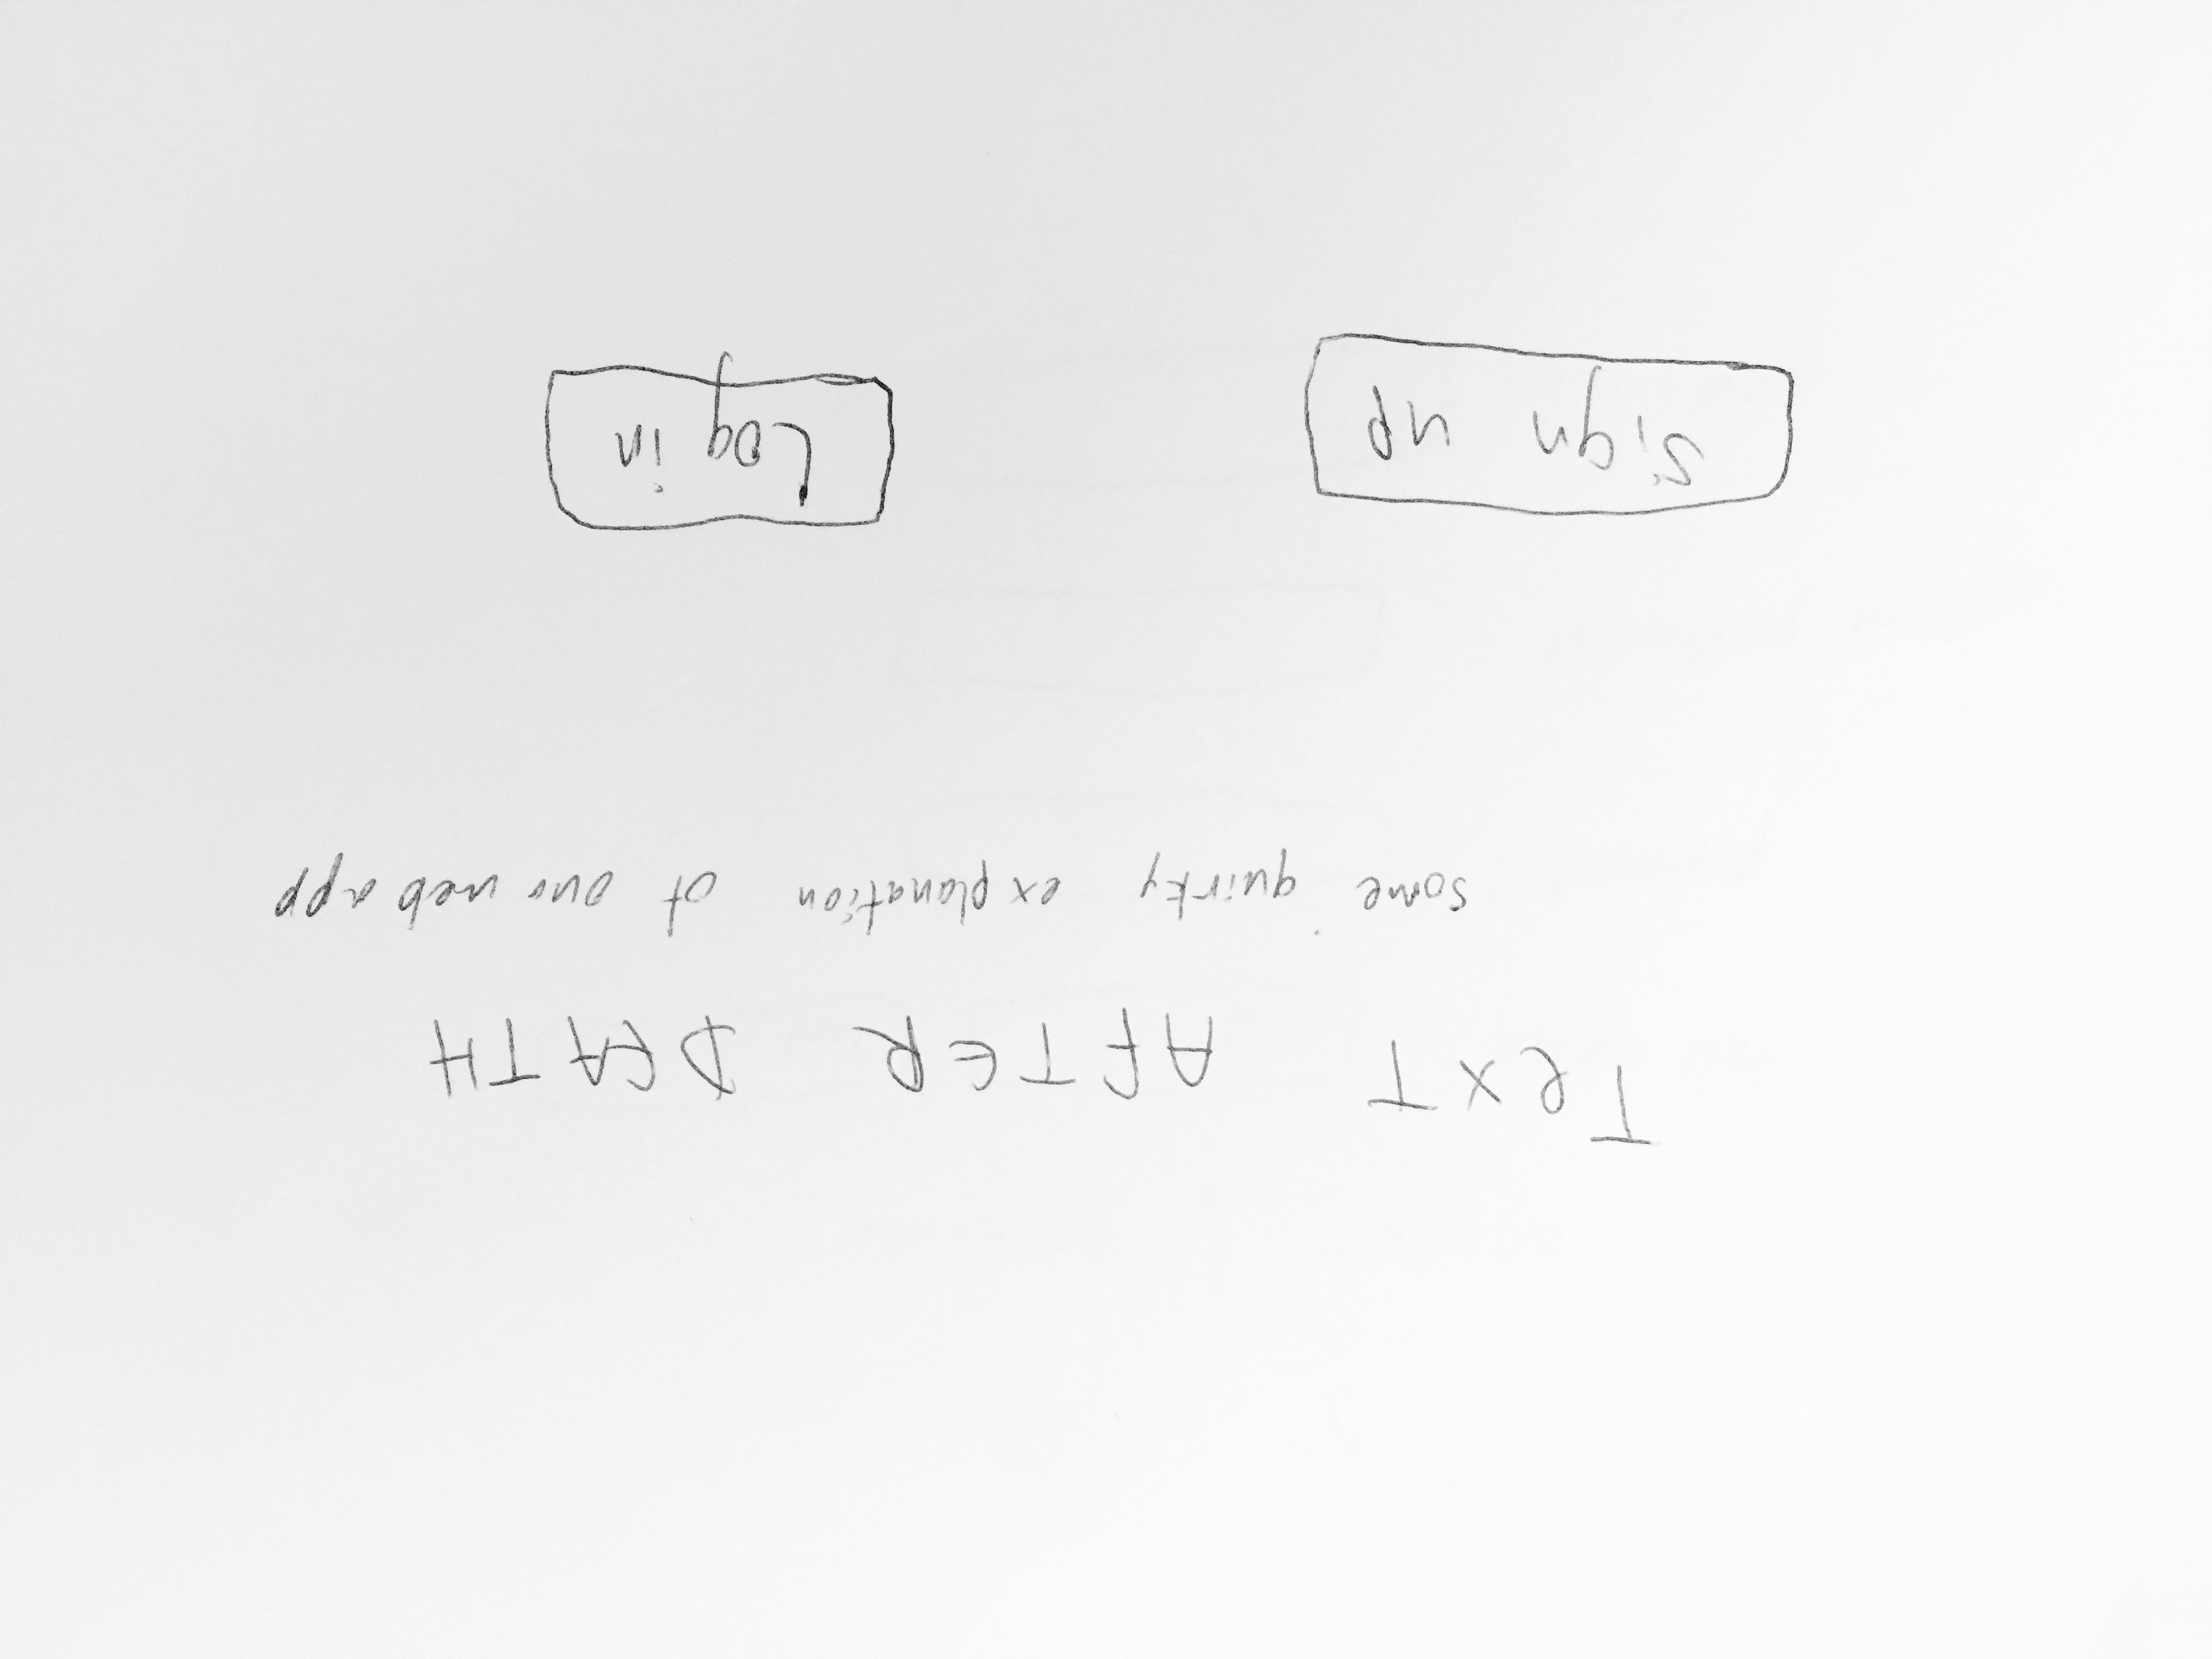 TeXT AFTER DEATH
some quirky explanation of our web app
Sign up Log in